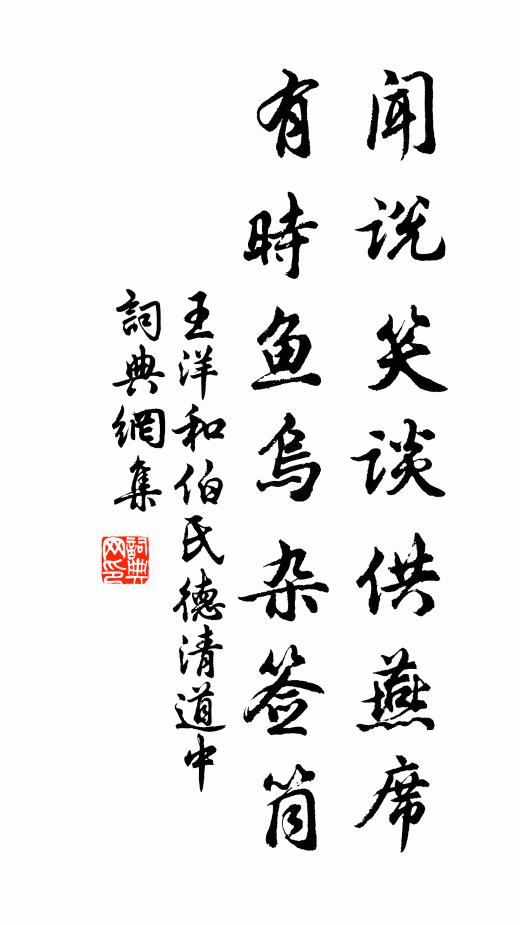 闻说笑谈供燕席
有時鱼烏杂签筒
王洋和伯氏德清道中
詞典網集
詞典网印